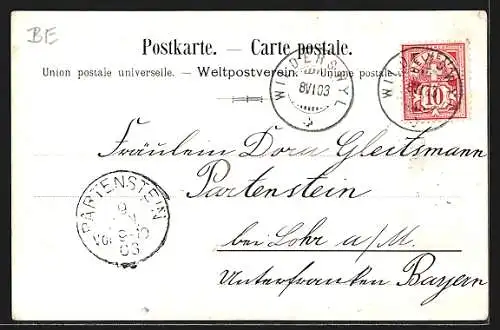 BE
Postkarte. — Carte postale.
Union postale universelle. — Weltpostverein. — Unione postale
WILDERSWYL
8 VI 03
WILDERSWYL
10
Fräulein Dora Gleitsmann
Partenstein
bei Lohr a/M.
Unterfranken Bayern
PARTENSTEIN
9
03